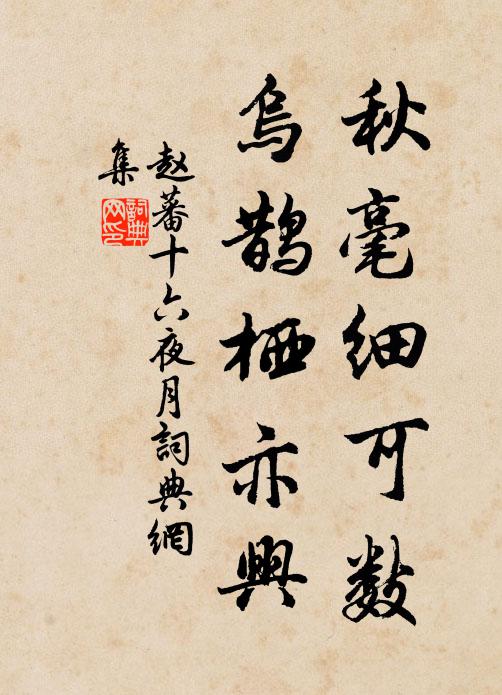 秋毫细可数
乌鹊栖亦興
赵蕃十六夜月詞典網
集
詞典網印